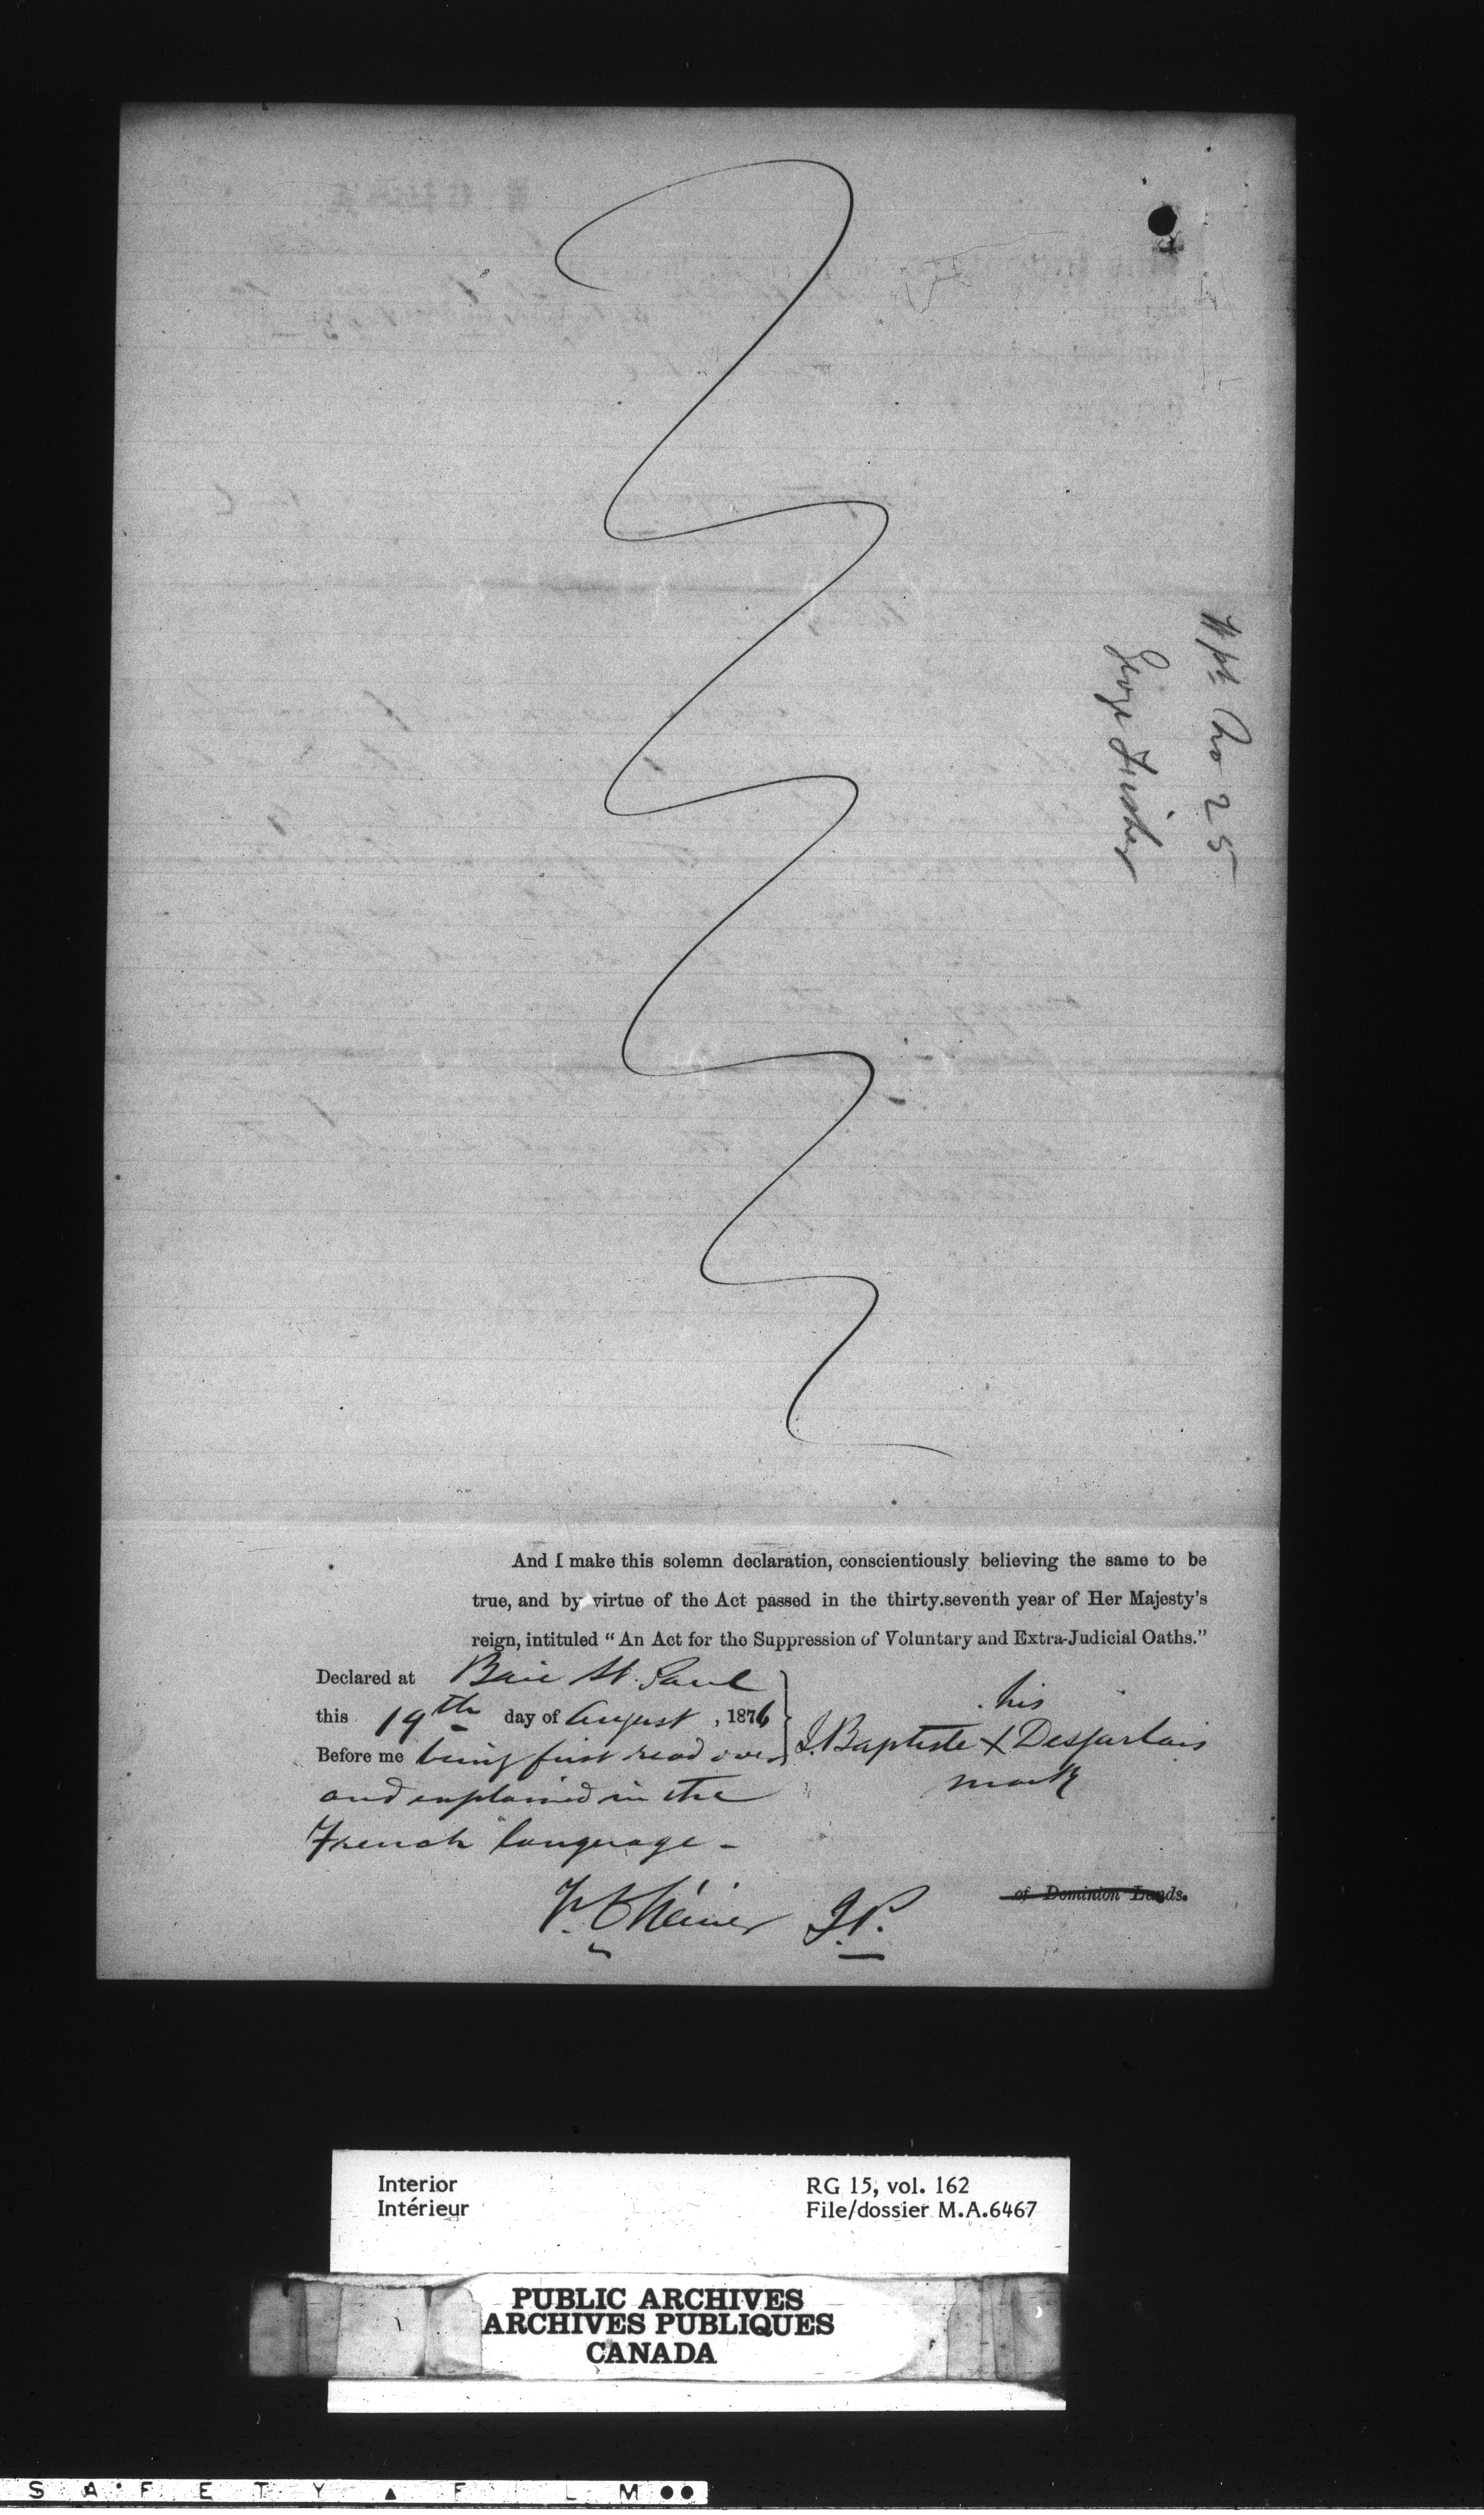 W pt No 25
George Fisher
And I make this solemn declaration, conscientiously believing the same to be
true, and by virtue of the Act passed in the thirty.seventh year of Her Majesty's
reign, intituled "An Act for the Suppression of Voluntary and Extra-Judicial Oaths."
Declared at Baie St. Paul
this 19th day of August, 1876
Before me being first read over
and explained in the
French language -
his
J. Baptiste X Desjarlais
mark
J.P.
of Dominion Lands.
Interior
Intérieur
RG 15, vol. 162
File/dossier M.A.6467
PUBLIC ARCHIVES
ARCHIVES PUBLIQUES
CANADA
SAFETY ▲ FILM ●●